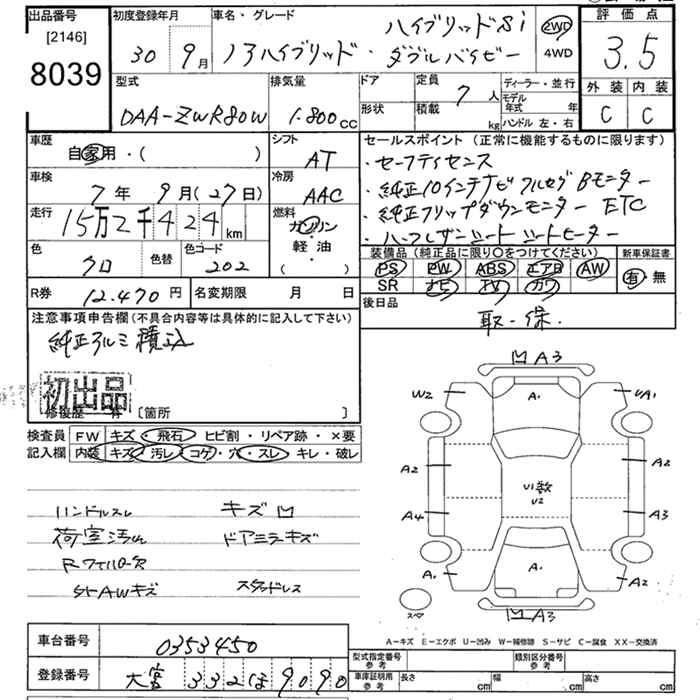 出品番号 初度登録年月 車名・グレード 評価点
[2146] ハイブリッドSi 2WD
8039 30 9月 ノアハイブリッド・ダブルバイビー 4WD 3.5
型式 排気量 ドア 定員 7人 ディーラー・並行 外装 内装
DAA-ZWR80W 1.800cc 形状 積載 kg モデル年式 年 C C
ハンドル 左・右
車歴 シフト セールスポイント(正常に機能するものに限ります)
自家用・( ) AT ・セーフティセンス
車検 冷房 ・純正10インチナビ フルセグ Bモニター
7年 9月(27日) AAC ・純正フリップダウンモニター ETC
走行 燃料 ・ハーフレザーシート シートヒーター
15万2千424km ガソリン
色 色替 色コード 軽油 装備品(純正品に限り○をつけてください) 新車保証書
クロ 202 ( ) PS PW ABS エアB AW 有・無
SR ナビ TV カワ
R券 12.470円 名変期限 月 日 後日品
取・保.
注意事項申告欄(不具合内容等は具体的に記入して下さい)
純正アルミ積込
初出品
修復歴 [箇所 ]
検査員 FW キズ・飛石・ヒビ割・リペア跡・×要
記入欄 内装 キズ・汚レ・コゲ・穴・スレ・キレ・破レ
A3
W2 A. A1
A2 U1数 A2
U2
A4 A3
A. A. A2
スペア A3
ハンドルスレ キズ凹
荷室汚れ ドアミラーキズ
スタッドレス
A-キズ E-エクボ U-凹み W-補修跡 S-サビ C-腐食 XX-交換済
車台番号 0353450
型式指定番号 参考 類別区分番号 参考
登録番号 大宮 332 ほ 9090
車庫証明用 参考 長さ cm 幅 cm 高さ cm